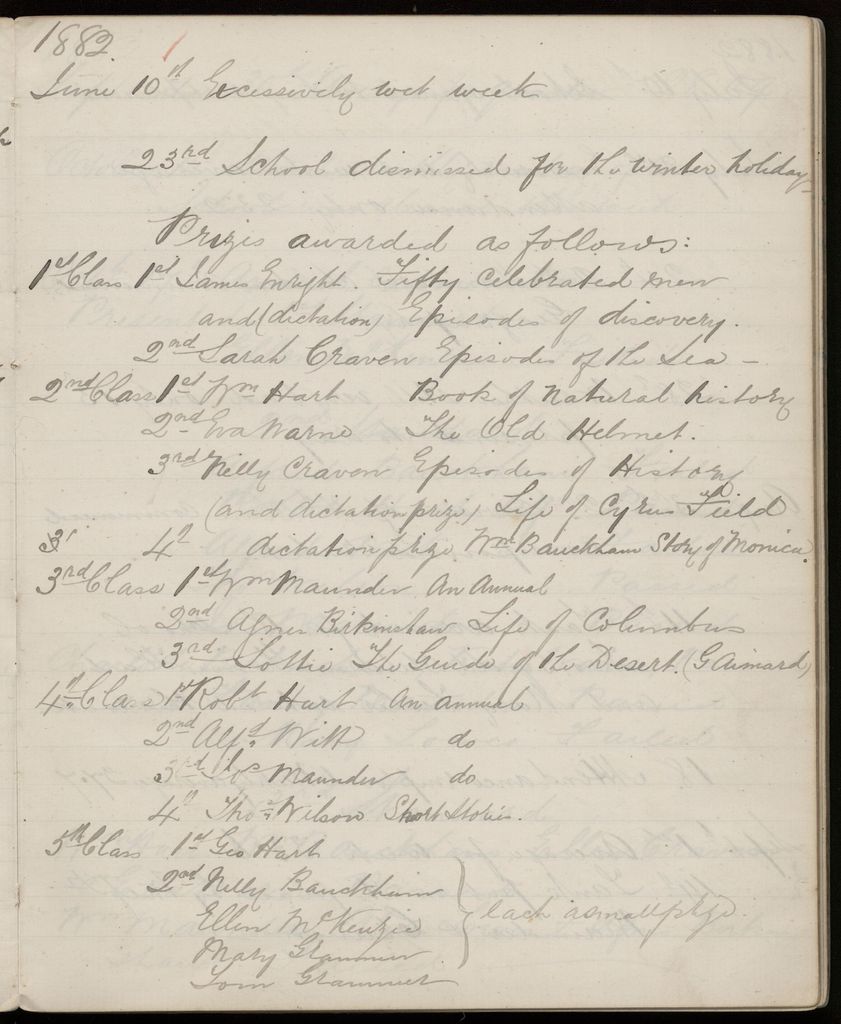 1882.
June 10th Excessively wet week
23rd School dismissed for the winter holidays
Prizes awarded as follows:
1st Class 1st James Enright. Fifty celebrated men
and (dictation) Episodes of discovery.
2nd Sarah Craven Episodes of the Sea -
2nd Class 1st Wm Hart Book of Natural history
2nd Eva Warne The Old Helmet.
3rd Nelly Craven Episodes of History
(and dictation prize) Life of Cyrus Field
4th dictation prize Wm Bauckham Story of Monica.
3rd Class 1st Wm Maunder An Annual
2nd Agnes Birkinshaw Life of Columbus
3rd Lottie The Guide of the Desert. (G Aimard)
4th Class 1st Robt Hart An annual
2nd Alfd. Witt do
3rd Maunder do
4th Thos Wilson Short stories.
5th Class 1st Geo Hart
2nd Nelly Bauckham
Ellen McKenzie each a small prize.
Mary Grammer
Tom Grammer